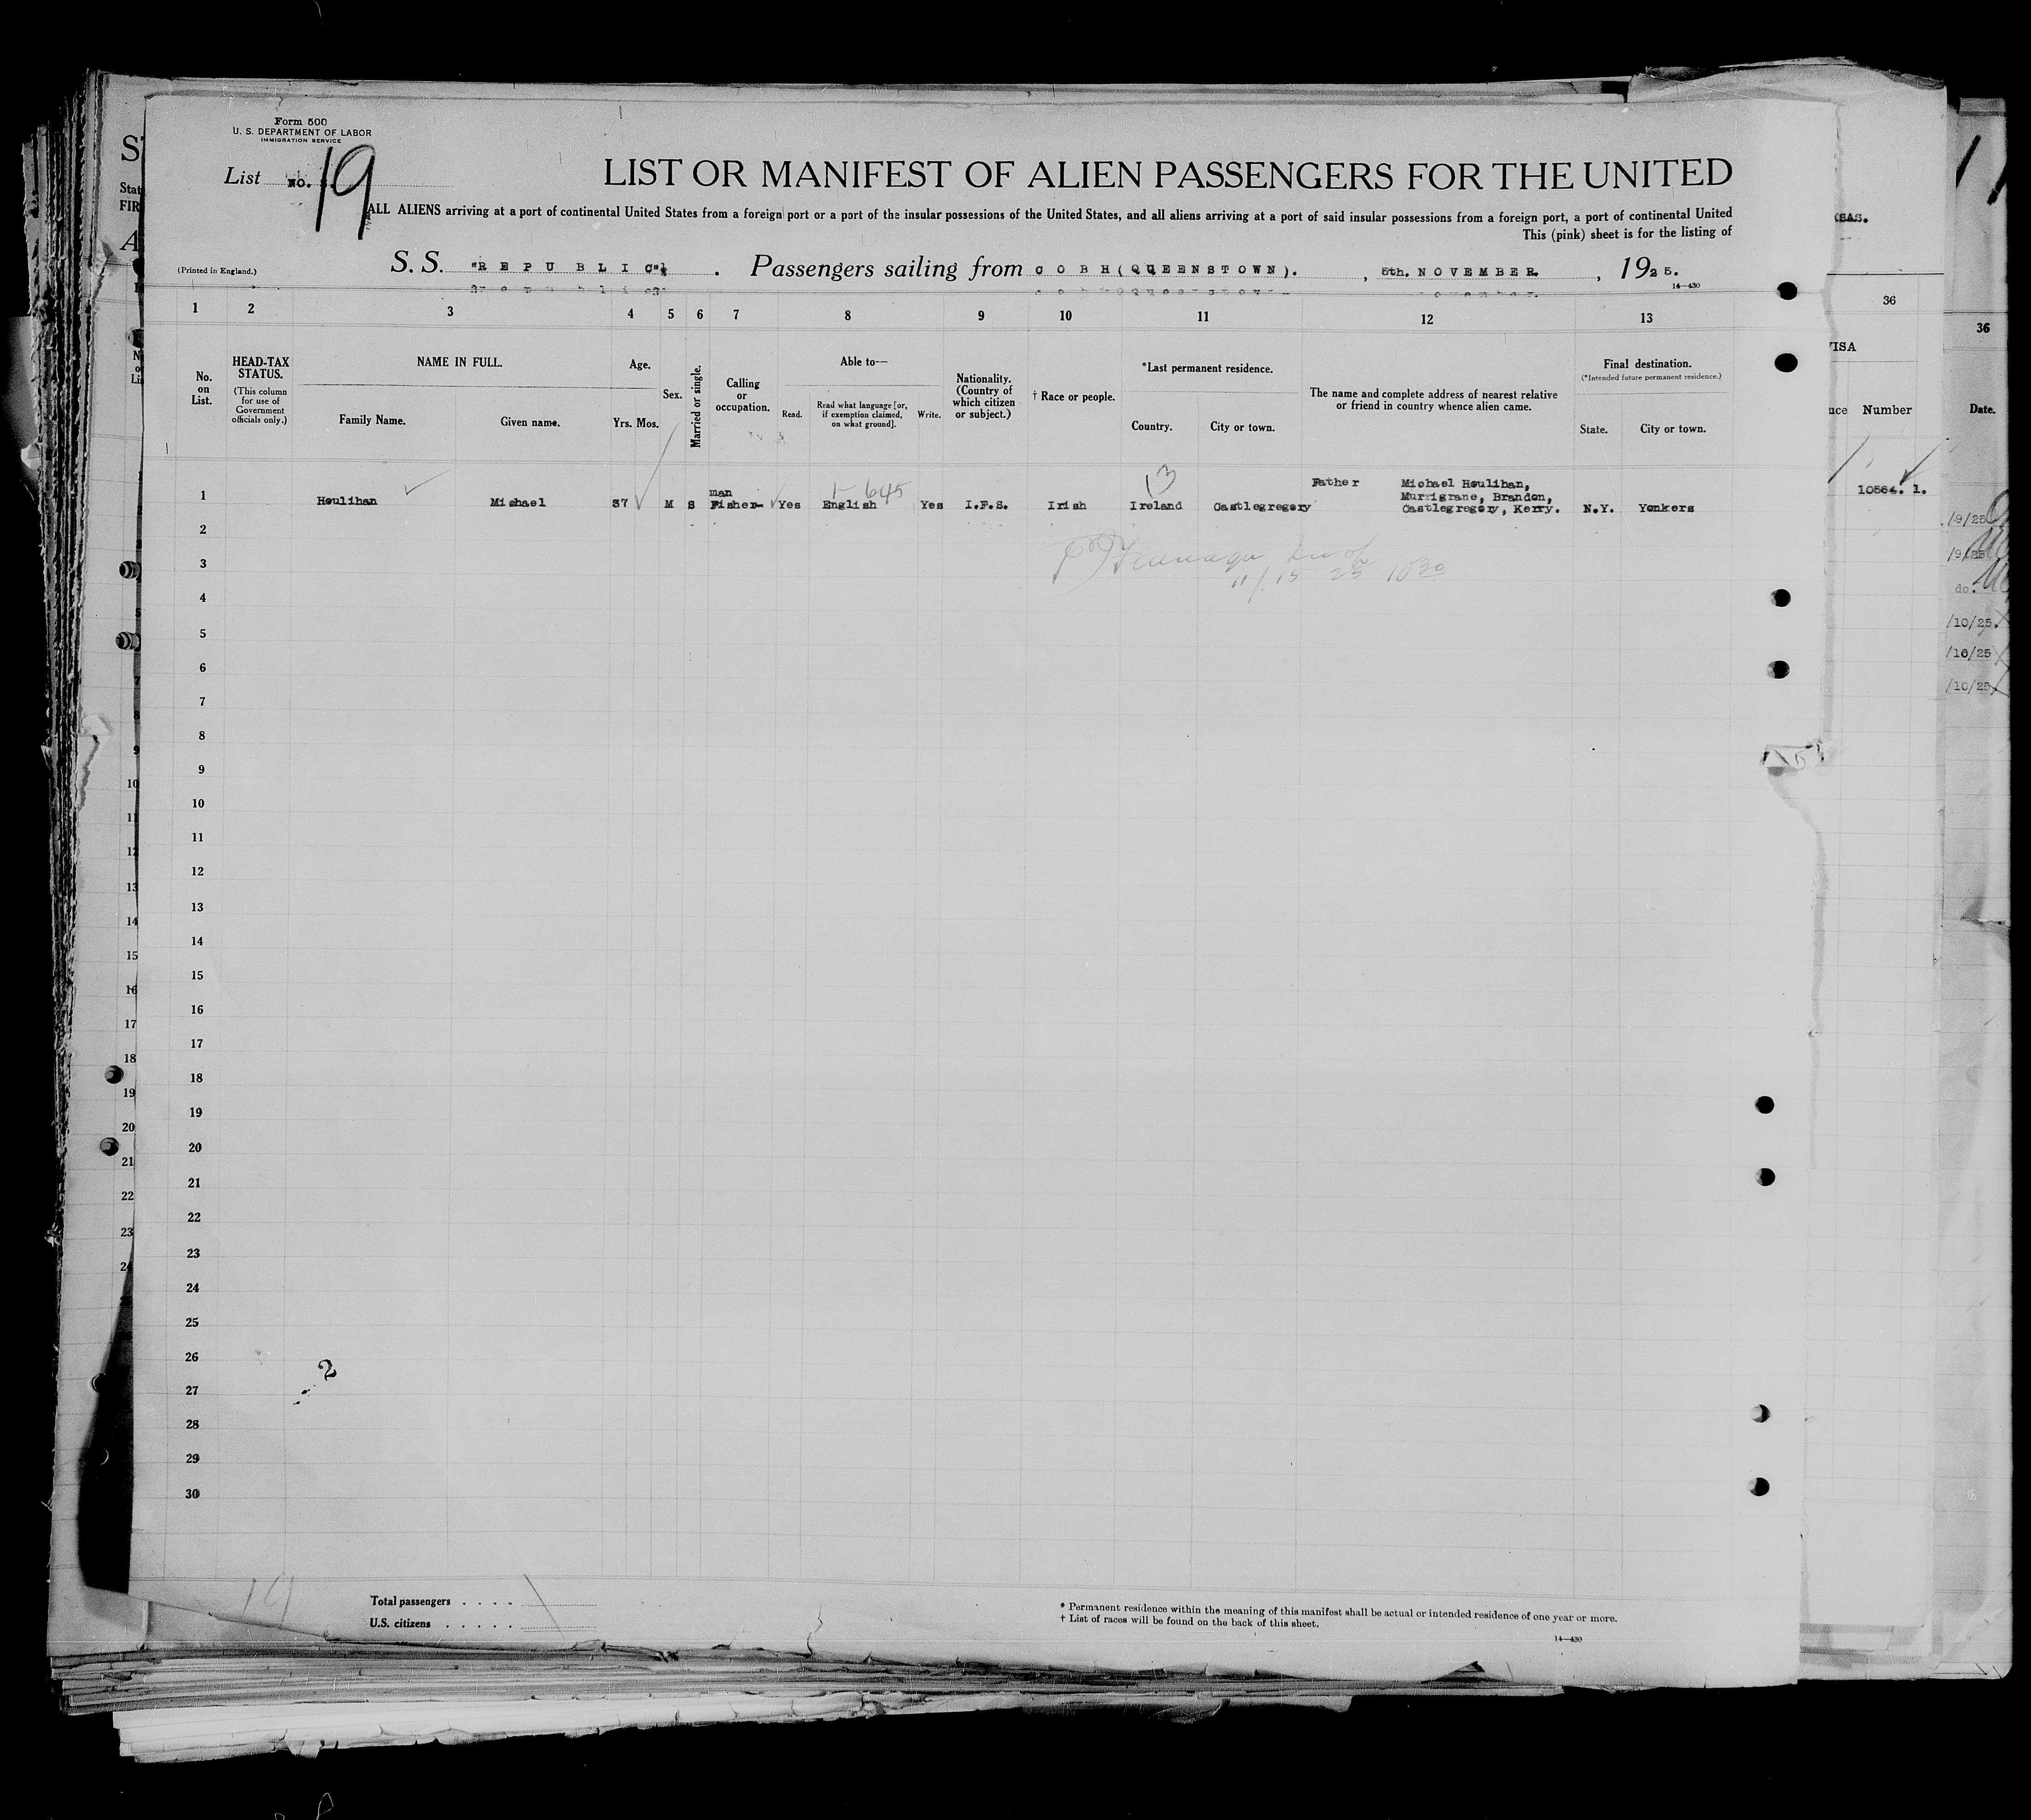 Form 500
U. S. DEPARTMENT OF LABOR
IMMIGRATION SERVICE
List No. 19
LIST OR MANIFEST OF ALIEN PASSENGERS FOR THE UNITED
ALL ALIENS arriving at a port of continental United States from a foreign port or a port of the insular possessions of the United States, and all aliens arriving at a port of said insular possessions from a foreign port, a port of continental United
This (pink) sheet is for the listing of
(Printed in England.)
S. S. "REPUBLIC". Passengers sailing from COBH(QUEENSTOWN). , 5th. NOVEMBER. , 1925.
14—430
1 2 3 4 5 6 7 8 9 10 11 12 13
36
36
No. on List.
HEAD-TAX STATUS.
(This column for use of Government officials only.)
NAME IN FULL.
Family Name. Given name.
Age.
Yrs. Mos.
Sex.
Married or single.
Calling or occupation.
Able to—
Read. Read what language [or, if exemption claimed, on what ground]. Write.
Nationality. (Country of which citizen or subject.)
† Race or people.
*Last permanent residence.
Country. City or town.
The name and complete address of nearest relative or friend in country whence alien came.
Final destination.
(*Intended future permanent residence.)
State. City or town.
Number
Date.
13
1-645
man Father Michael Houlihan,
Murrigrane, Brandon,
1 Houlihan Michael 37 M S Fisher- Yes English Yes I.F.S. Irish Ireland Castlegregory Castlegregory, Kerry. N.Y. Yonkers
10564. 1.
2
3
11/15 25 10 30
4
5
6
7
8
9
10
11
12
13
14
15
16
17
18
19
20
21
22
23
24
25
26
27
28
29
30
2
/9/25
/9/25
do.
/10/25.
/16/25
/10/25
19
Total passengers . . . .
U.S. citizens . . . . .
* Permanent residence within the meaning of this manifest shall be actual or intended residence of one year or more.
† List of races will be found on the back of this sheet.
14—430